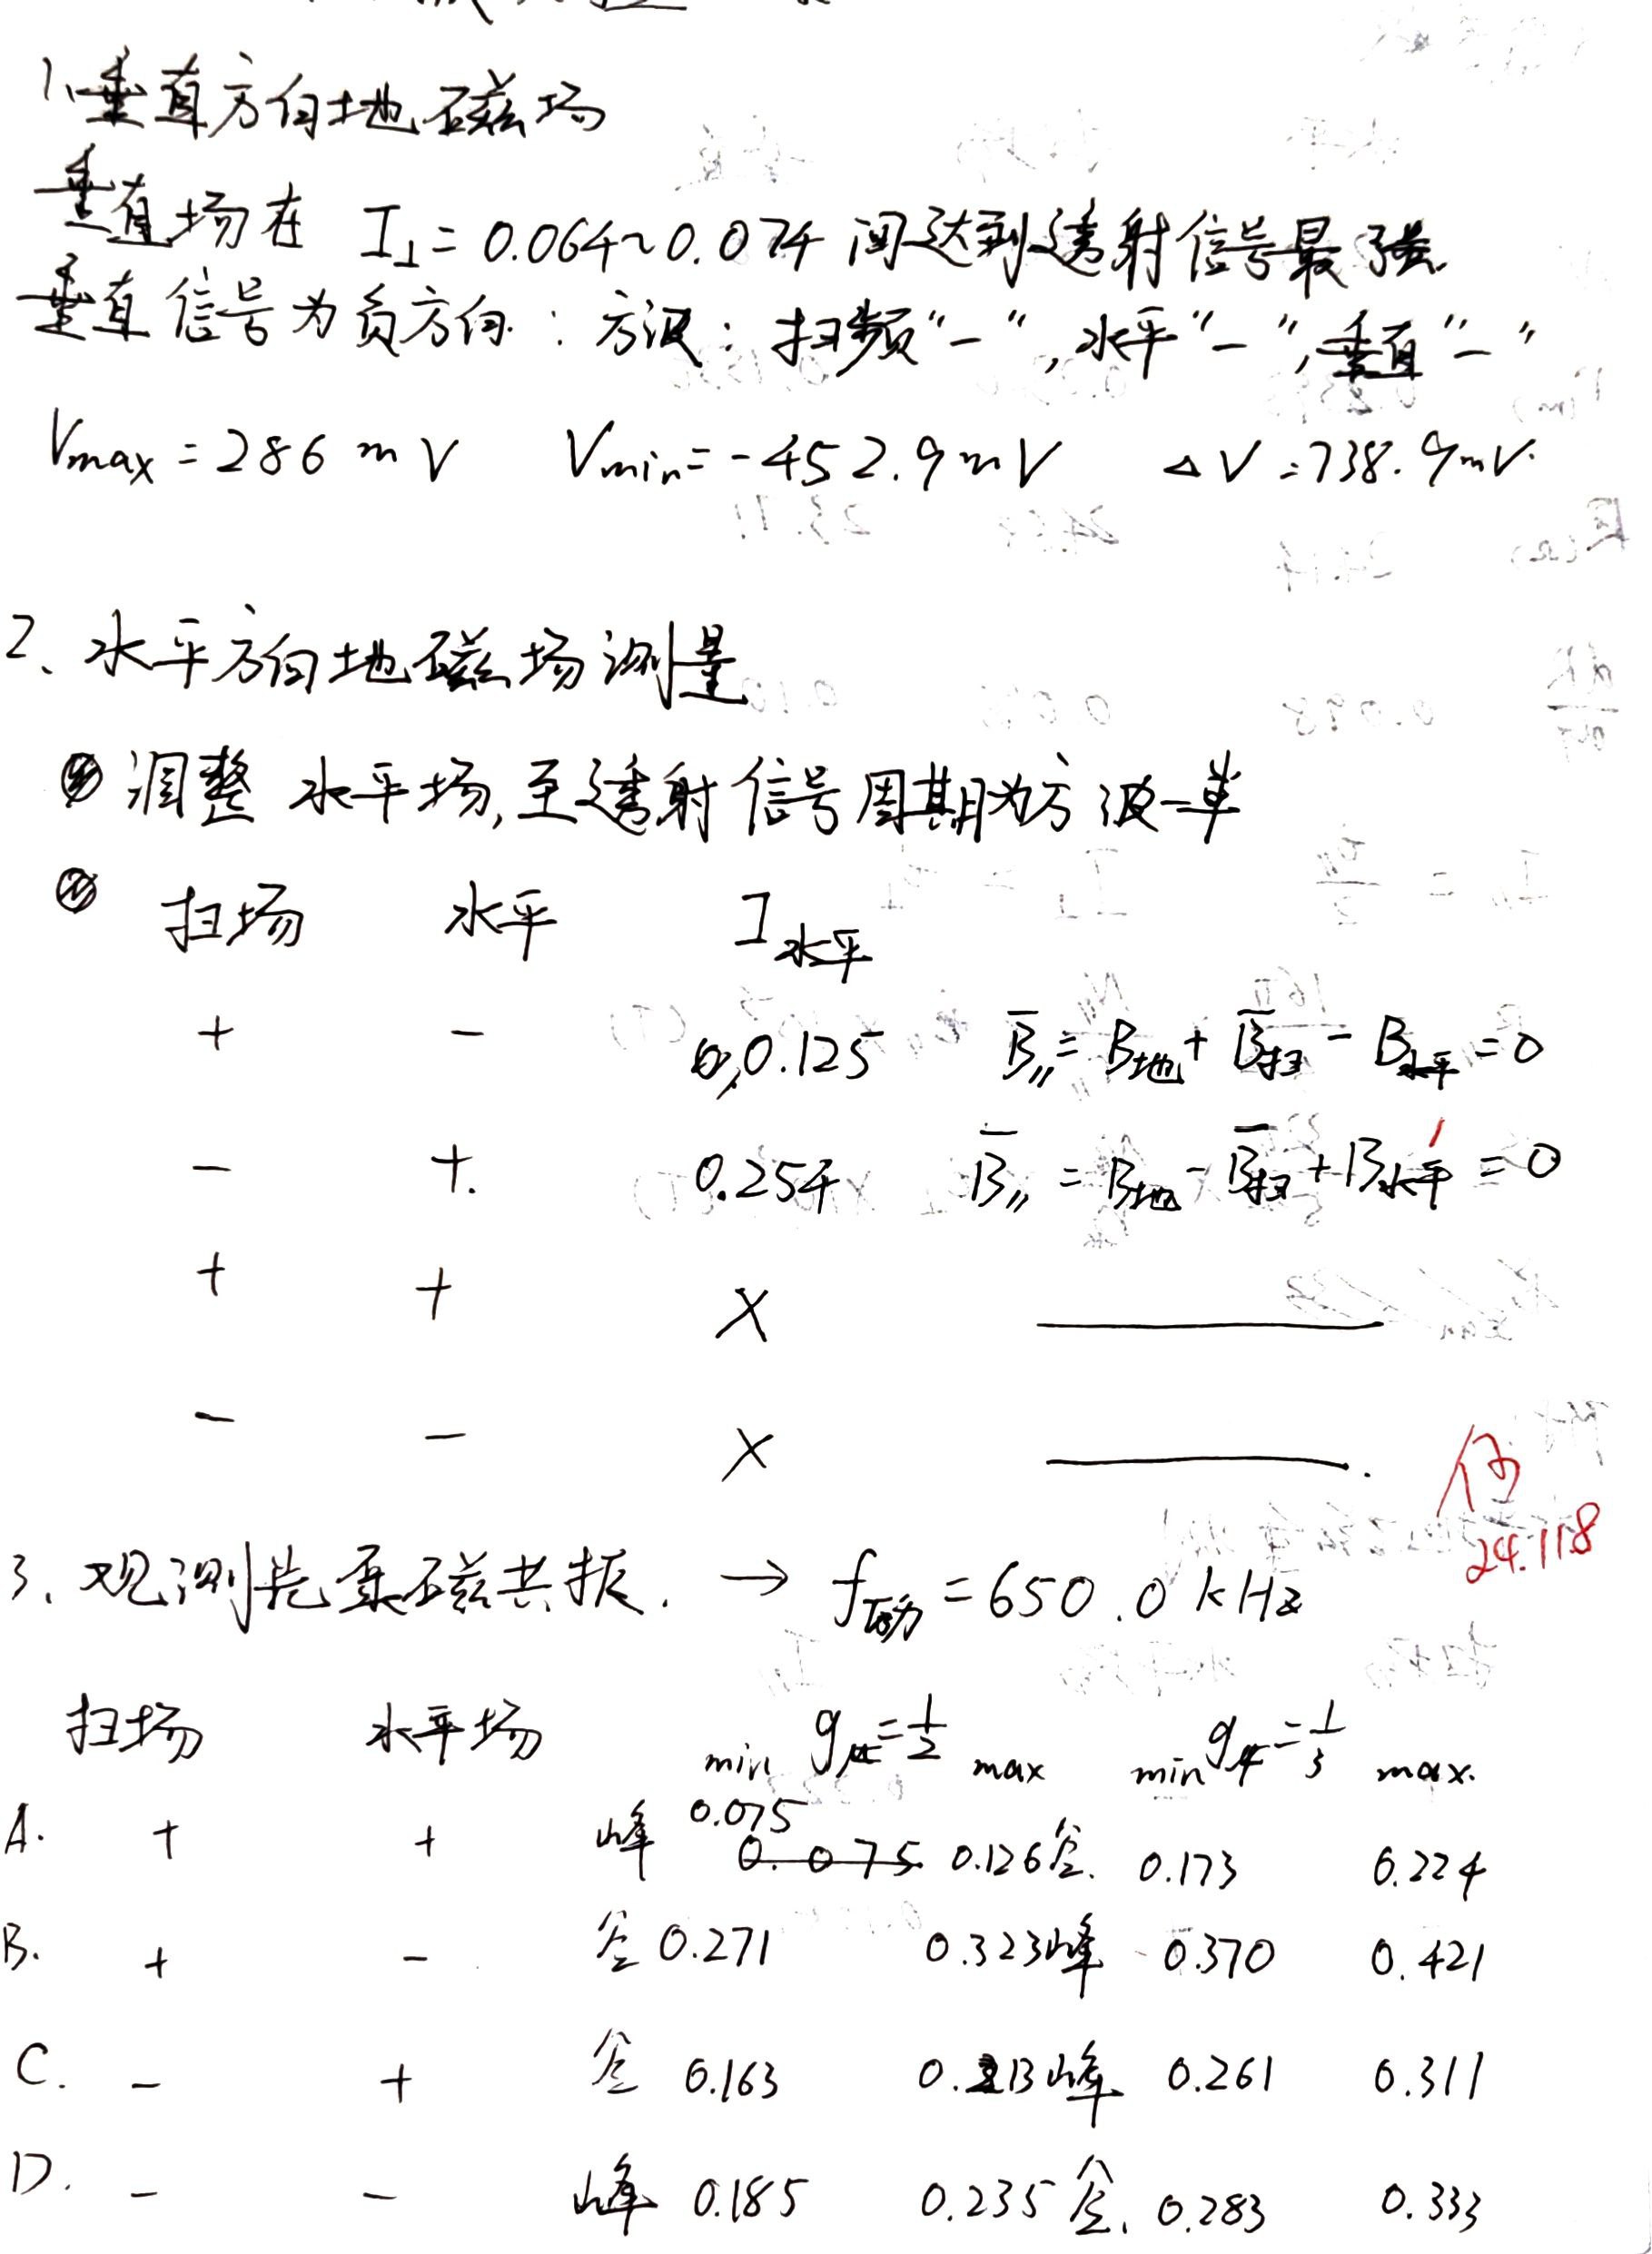 1、垂直方向地磁场
垂直场在 I⊥ = 0.064~0.074 间达到透射信号最强.
垂直信号为负方向: 方波: 扫频“-”, 水平“-”, 垂直“-”
Vmax = 286 mV Vmin = -452.9mV ΔV = 738.9mV.
2、水平方向地磁场测量
① 调整水平场, 至透射信号周期为方波一半
② 扫场 水平 I水平
+ - 0.125 B̅// = B地 + B̅扫 - B水平 = 0
- +. 0.254 B̅// = B地 - B̅扫 + B水平' = 0
+ + X
- - X
何
24.11.8
3、观测光泵磁共振. → f = 650.0 kHz
扫场 水平场 min g = 1/2 max min g = 1/3 max.
A. + + 峰 0.075 0.075 0.126谷. 0.173 0.224
B. + - 谷 0.271 0.323峰 0.370 0.421
C. - + 谷 0.163 0.213峰 0.261 0.311
D. - - 峰 0.185 0.235谷. 0.283 0.333